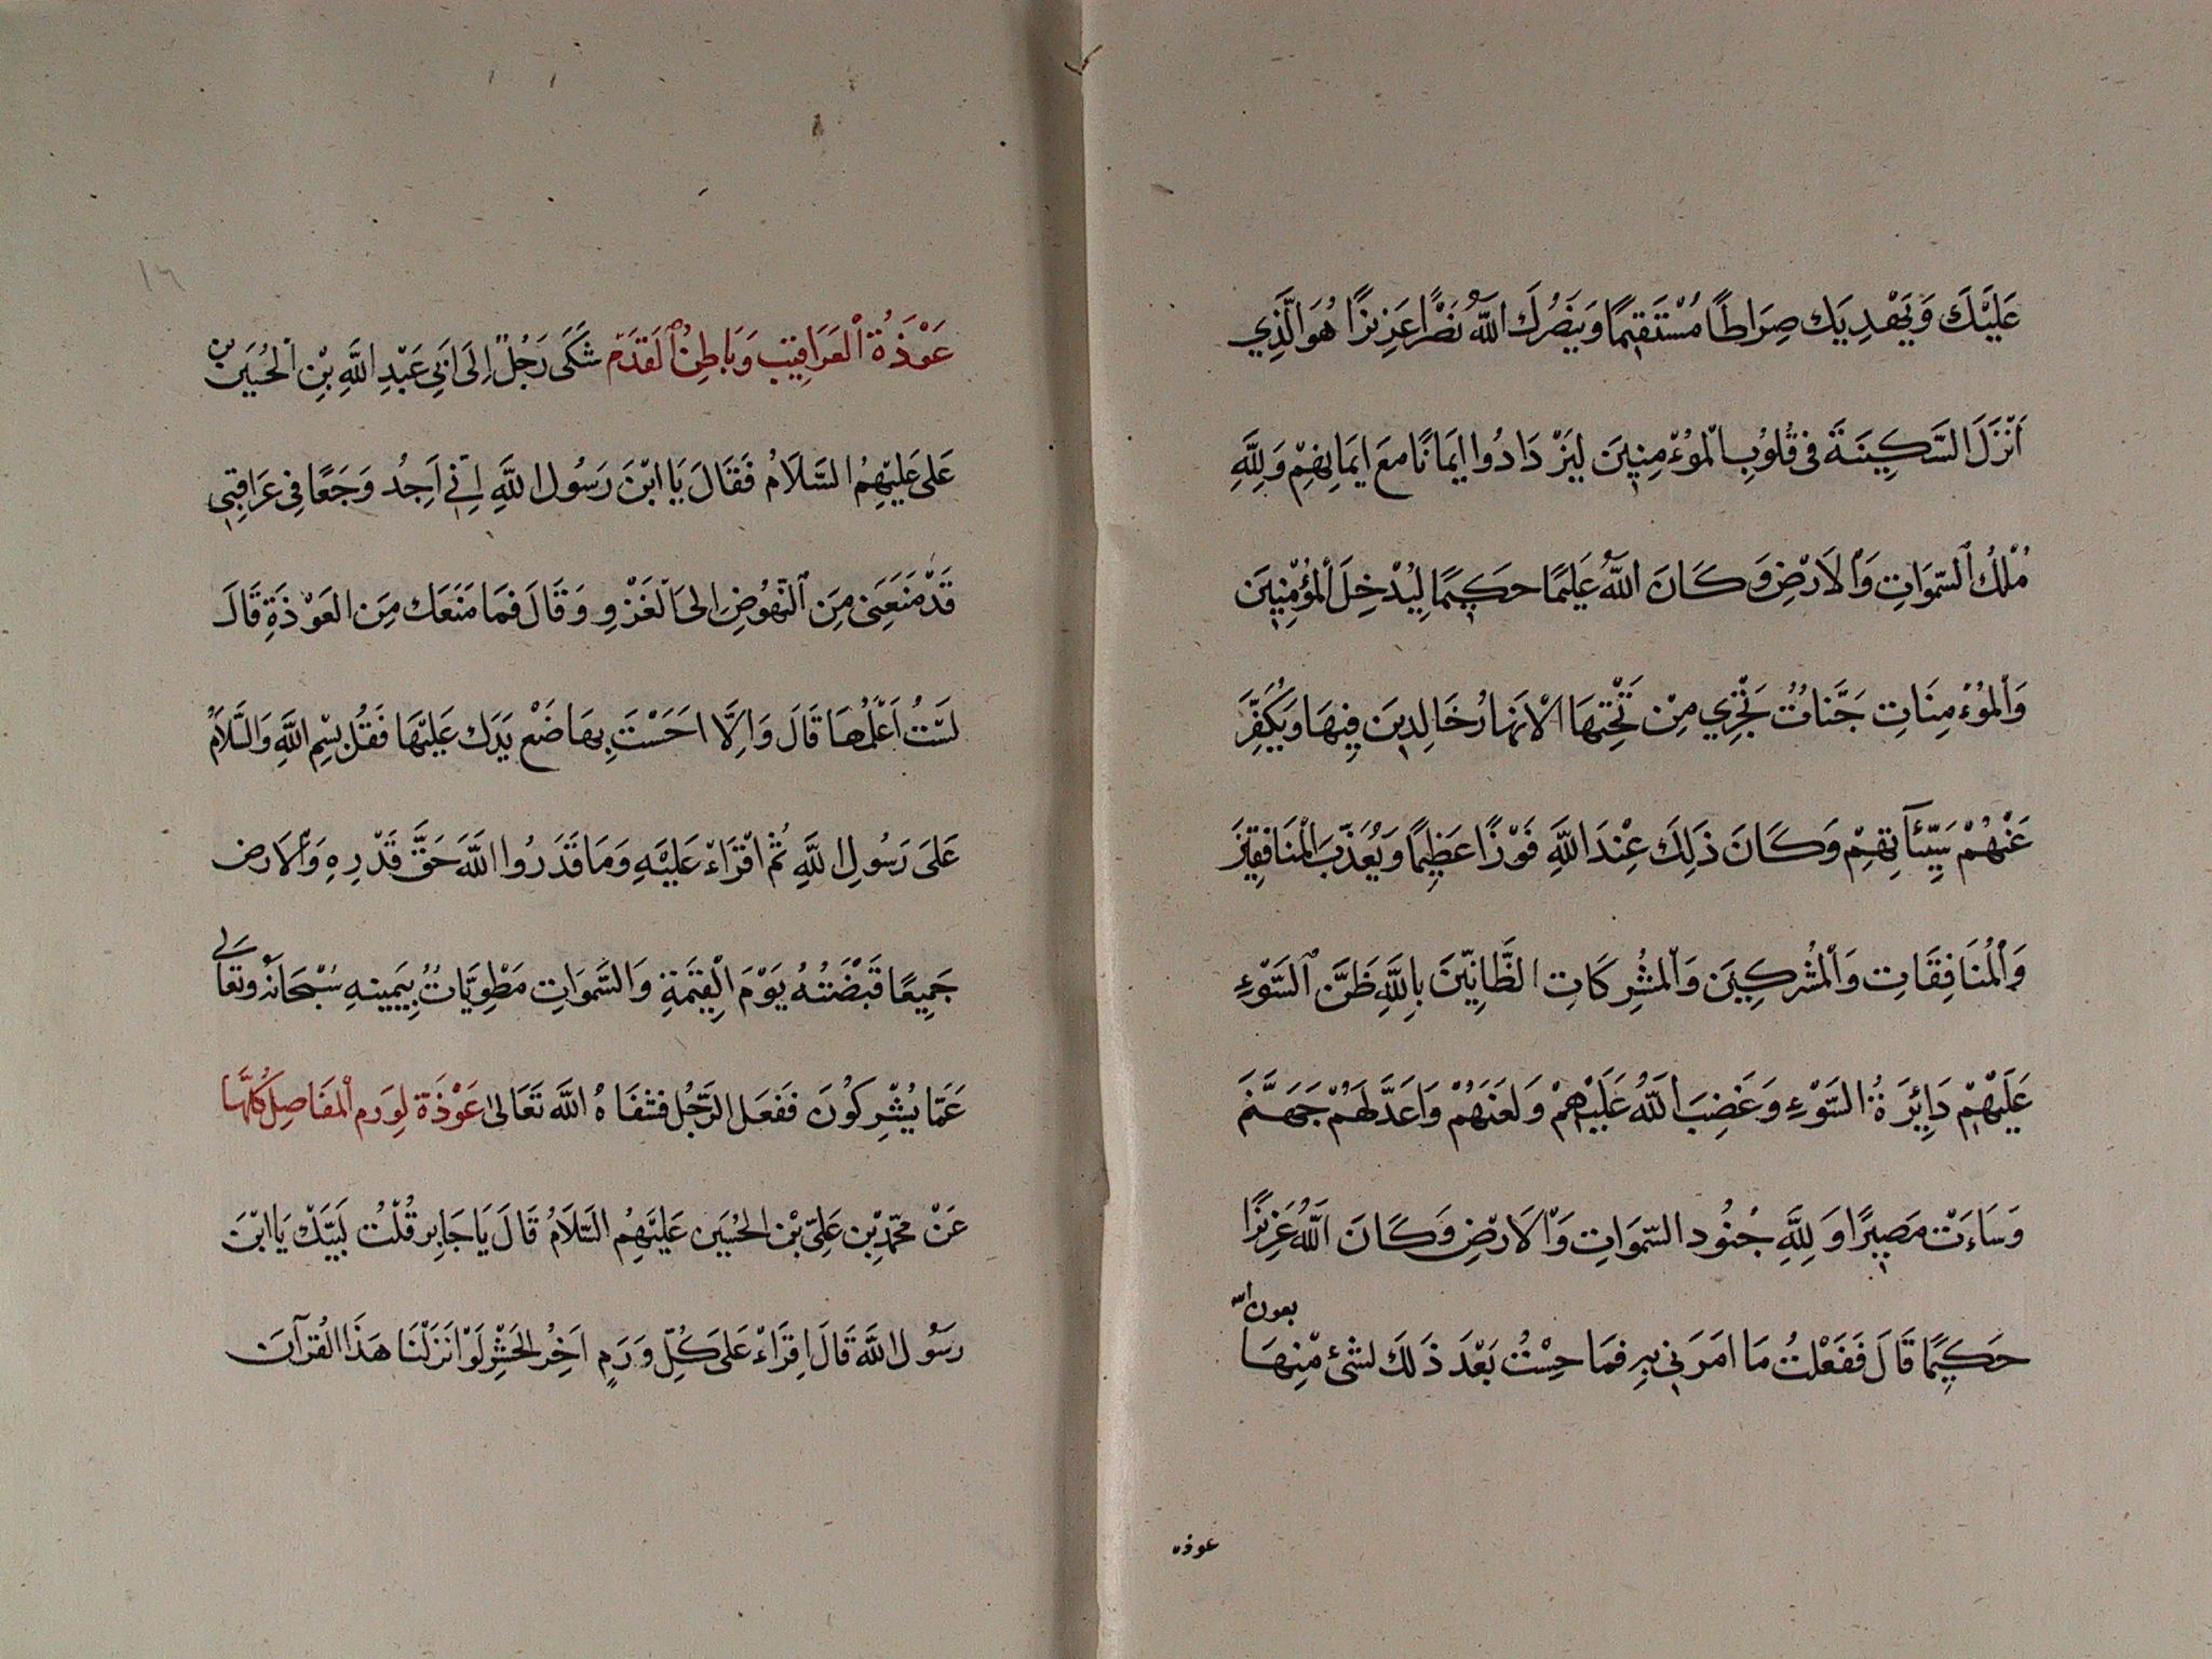 عَلَيْكَ وَيَهْدِيَكَ صِرَاطًا مُسْتَقِيمًا وَيَنْصُرَكَ اللَّهُ نَصْرًا عَزِيزًا هُوَ الَّذِي
اَنْزَلَ السَّكِينَةَ فى قُلُوبِ الْمُوْءمِنِينَ لِيَزْدَادُوا اِيمَانًا مَعَ اِيمَانِهِمْ وَلِلَّهِ
مُلْكُ السَّمَوَاتِ وَالْاَرْضِ وَكَانَ اللَّهُ عَلِيمًا حَكِيمًا لِيُدْخِلَ الْمُؤْمِنِينَ
وَالْمُوْءمِنَاتِ جَنَّاتٌ تَجْرِي مِنْ تَحْتِهَا الْاَنْهَارُ خَالِدِينَ فِيهَا وَيُكَفِّرَ
عَنْهُمْ سَيِّئَآتِهِمْ وَكَانَ ذَلِكَ عِنْدَ اللَّهِ فَوْزًا عَظِيمًا وَيُعَذِّبَ الْمُنَافِقِينَ
وَالْمُنَافِقَاتِ وَالْمُشْرِكِينَ وَالْمُشْرِكَاتِ الظَّانِّينَ بِاللَّهِ ظَنَّ السَّوْءِ
عَلَيْهِمْ دَايِرَةُ السَّوْءِ وَغَضِبَ اللَّهُ عَلَيْهِمْ وَلَعَنَهُمْ وَاَعَدَّ لَهُمْ جَهَنَّمَ
وَسَاءَتْ مَصِيرًا وَلِلَّهِ جُنُود السَّمَوَاتِ وَالْاَرْضِ وَكَانَ اللَّهُ عَزِيزًا
حَكِيمًا قَالَ فَفَعَلْتُ مَا امَرَنِي بِهِ فَمَا حِسْتُ بَعْدَ ذَلِكَ لشئ مِنْهَا بعون الله
عوذه
عَوْذَةُ الْعَرَاقِيبِ وَبَاطِنُ الْقَدَمِ شَكَى رَجُلٌ اِلَى اَبِي عَبْدِ اللَّهِ بْنِ الْحُسَيْنِ بن
عَلى عَلَيْهِمُ السَّلَامُ فَقَالَ يَا ابْنَ رَسُول اللَّهِ اِنِّي اَجِدُ وَجَعًا فِي عَرَاقِيبِي
قَدْ مَنَعَنِى مِنَ النُّهُوضِ اِلىَ الْغَزْوِ وَقَالَ فَمَا مَنَعَك مِنَ العَوْذَةِ قَالَ
لَسْتُ اَعْلَمُهَا قَالَ وَاِلَّا احَسْتَ بِهَا ضَعْ يَدَك عَلَيْهَا فَقُلْ بِسْمِ اللَّهِ وَالسَّلَامُ
عَلَى رَسُولِ اللَّهِ ثُمَّ اقْرَاءْ عَلَيْهِ وَمَا قَدَرُوا اللَّهَ حَقَّ قَدْرِهِ وَالْاَرض
جَمِيعًا قَبْضَتُهُ يَوْمَ الْقِيَمَةِ وَالسَّمَوَاتِ مَطْوِيَّاتٌ بِيَمِينِهِ سُبْحَانَهُ وَتَعَالَى
عَمَّا يُشْرِكُونَ فَفَعَل الرَّجُل فَشَفَاهُ اللَّه تَعَالىٰ عَوْذَة لِوَرم الْمَفَاصِل كُلِّهَا
عَنْ مُحَمَّدِ بْن عَلِيّ بْن الْحُسَين عَلَيْهِمُ السَّلَامُ قَالَ يَا جَابِر قُلْتُ لَبَّيْك يَا ابْنَ
رَسُول اللَّه قَالَ اِقْرَاءْ عَلَى كُلِّ وَرَمٍ اَخِرُ الْحَشْرِ لَوْ اَنْزَلْنَا هَذَا الْقُرْآنَ